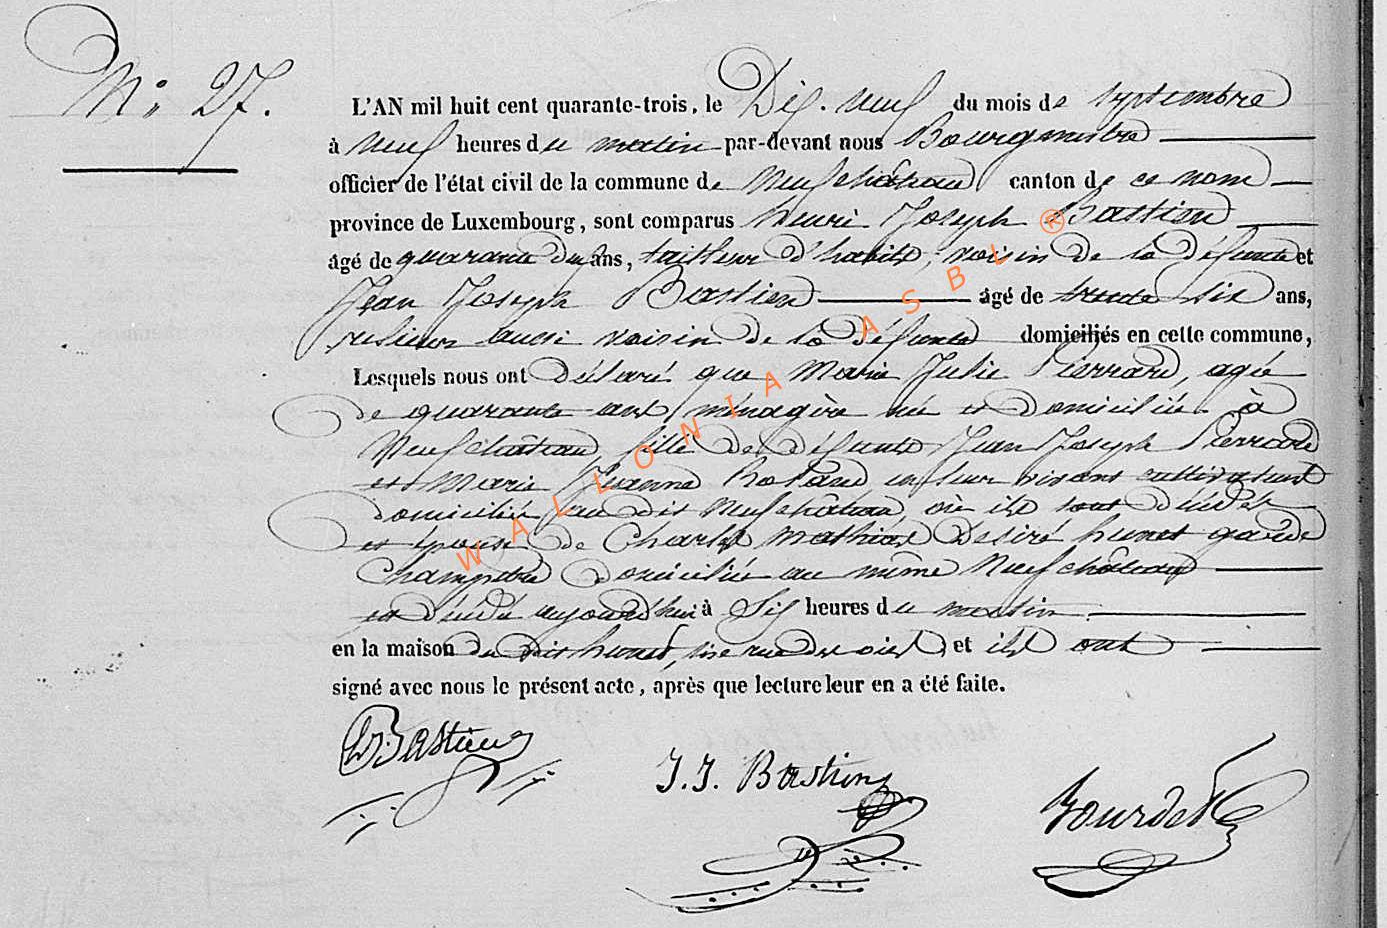 N.º 27.
L'AN mil huit cent quarante-trois, le Dix-neuf du mois de septembre
à neuf heures du matin par-devant nous Bourgmestre
officier de l'état civil de la commune de Neufchâteau canton de ce nom
province de Luxembourg, sont comparus henri Joseph Bastien
âgé de quarante deux ans, tailleur d'habits, voisin de la défunte et
Jean Joseph Bastien âgé de trente six ans,
relieur aussi voisin de la défunte domiciliés en cette commune,
Lesquels nous ont déclaré que Marie Julie Pierrard, agée
de quarante ans, ménagère née et domiciliée à
Neufchâteau, fille de défunts Jean Joseph Pierrard
et Marie Jeanne en leur vivant cultivateurs
domiciliés au dit Neufchâteau où ils sont décédés
et épouse de Charles Mathias Désiré hunet garde
Champêtre domicilié au même Neufchâteau
est décédé aujourd'hui à Six heures du matin
en la maison du dit hunet, sise rue et ils ont
signé avec nous le présent acte, après que lecture leur en a été faite.
Bastien
J. J. Bastien
Bourdet
WALLONIA ASBL ®